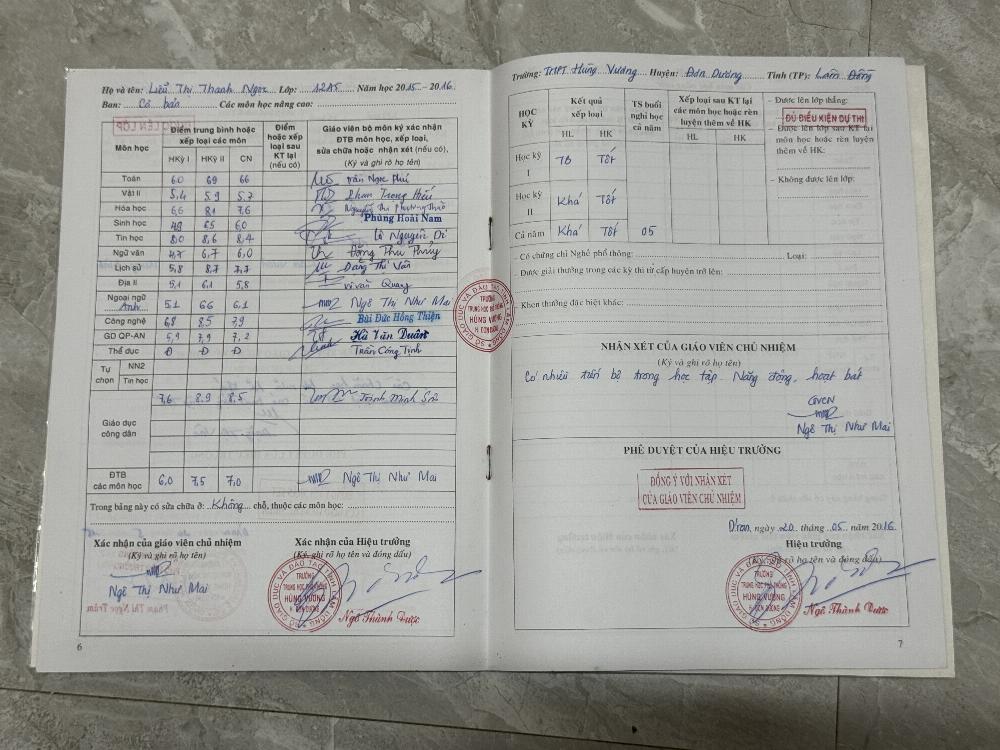 Họ và tên: Liễu Thị Thanh Ngọc Lớp: 12A5 Năm học 2015 - 2016
Ban: Cơ bản Các môn học nâng cao:
Môn học
Điểm trung bình hoặc xếp loại các môn
HKỳ I HKỳ II CN
Điểm hoặc xếp loại sau KT lại (nếu có)
Giáo viên bộ môn ký xác nhận ĐTB môn học, xếp loại, sửa chữa hoặc nhận xét (nếu có),
(Ký và ghi rõ họ tên)
Toán 6.0 6.9 6.6 Trần Ngọc Phú
Vật lí 5,4 5.9 5.7 Phạm Trọng Hiếu
Hóa học 6,6 8.1 7,6 Nguyễn Thị Phương Thảo
Sinh học 4,9 6.5 6,0 Phùng Hoài Nam
Tin học 8,0 8,6 8.4 Lê Nguyên Di
Ngữ văn 4,7 6,7 6,0 Đồng Thu Thủy
Lịch sử 5,8 8,7 7,7 Đặng Thị Vân
Địa lí 5,1 6,1 5,8 Vi Văn Quang
Ngoại ngữ Anh 5,1 6.6 6,1 Ngô Thị Như Mai
Công nghệ 6,8 8,5 7,9 Bùi Đức Hồng Thiện
GD QP-AN 5,9 7,9 7,2 Hà Văn Duân
Thể dục Đ Đ Đ Trần Công Tịnh
Tự chọn NN2
Tin học
Giáo dục công dân 7,6 8.9 8,5 Trịnh Minh
ĐTB các môn học 6,0 7,5 7,0 Ngô Thị Như Mai
Trong bảng này có sửa chữa ở: Không chỗ, thuộc các môn học:
Xác nhận của giáo viên chủ nhiệm
(Ký và ghi rõ họ tên)
Ngô Thị Như Mai
Xác nhận của Hiệu trưởng
(Ký, ghi rõ họ tên và đóng dấu)
SỞ GIÁO DỤC VÀ ĐÀO TẠO TỈNH LÂM ĐỒNG
TRƯỜNG
TRUNG HỌC PHỔ THÔNG
HÙNG VƯƠNG
H. ĐƠN DƯƠNG
Ngô Thành Được
6
Trường: THPT Hùng Vương Huyện: Đơn Dương Tỉnh (TP): Lâm Đồng
HỌC KỲ
Kết quả xếp loại
HL HK
TS buổi nghỉ học cả năm
Xếp loại sau KT lại các môn học hoặc rèn luyện thêm về HK
HL HK
Học kỳ I Tb Tốt
Học kỳ II Khá Tốt
Cả năm Khá Tốt 05
– Được lên lớp thẳng:
ĐỦ ĐIỀU KIỆN DỰ THI
– Được lên lớp sau KT lại môn học hoặc rèn luyện thêm về HK:
– Không được lên lớp:
– Có chứng chỉ Nghề phổ thông: Loại:
– Được giải thưởng trong các kỳ thi từ cấp huyện trở lên:
– Khen thưởng đặc biệt khác:
SỞ GIÁO DỤC VÀ ĐÀO TẠO TỈNH LÂM ĐỒNG
TRƯỜNG
TRUNG HỌC PHỔ THÔNG
HÙNG VƯƠNG
H. ĐƠN DƯƠNG
NHẬN XÉT CỦA GIÁO VIÊN CHỦ NHIỆM
(Ký và ghi rõ họ tên)
Có nhiều tiến bộ trong học tập. Năng động, hoạt bát
GVCN
Ngô Thị Như Mai
PHÊ DUYỆT CỦA HIỆU TRƯỞNG
ĐỒNG Ý VỚI NHẬN XÉT
CỦA GIÁO VIÊN CHỦ NHIỆM
D'ran, ngày 20 tháng 05 năm 2016
Hiệu trưởng
(Ký, ghi rõ họ tên và đóng dấu)
SỞ GIÁO DỤC VÀ ĐÀO TẠO TỈNH LÂM ĐỒNG
TRƯỜNG
TRUNG HỌC PHỔ THÔNG
HÙNG VƯƠNG
H. ĐƠN DƯƠNG
Ngô Thành Được
7